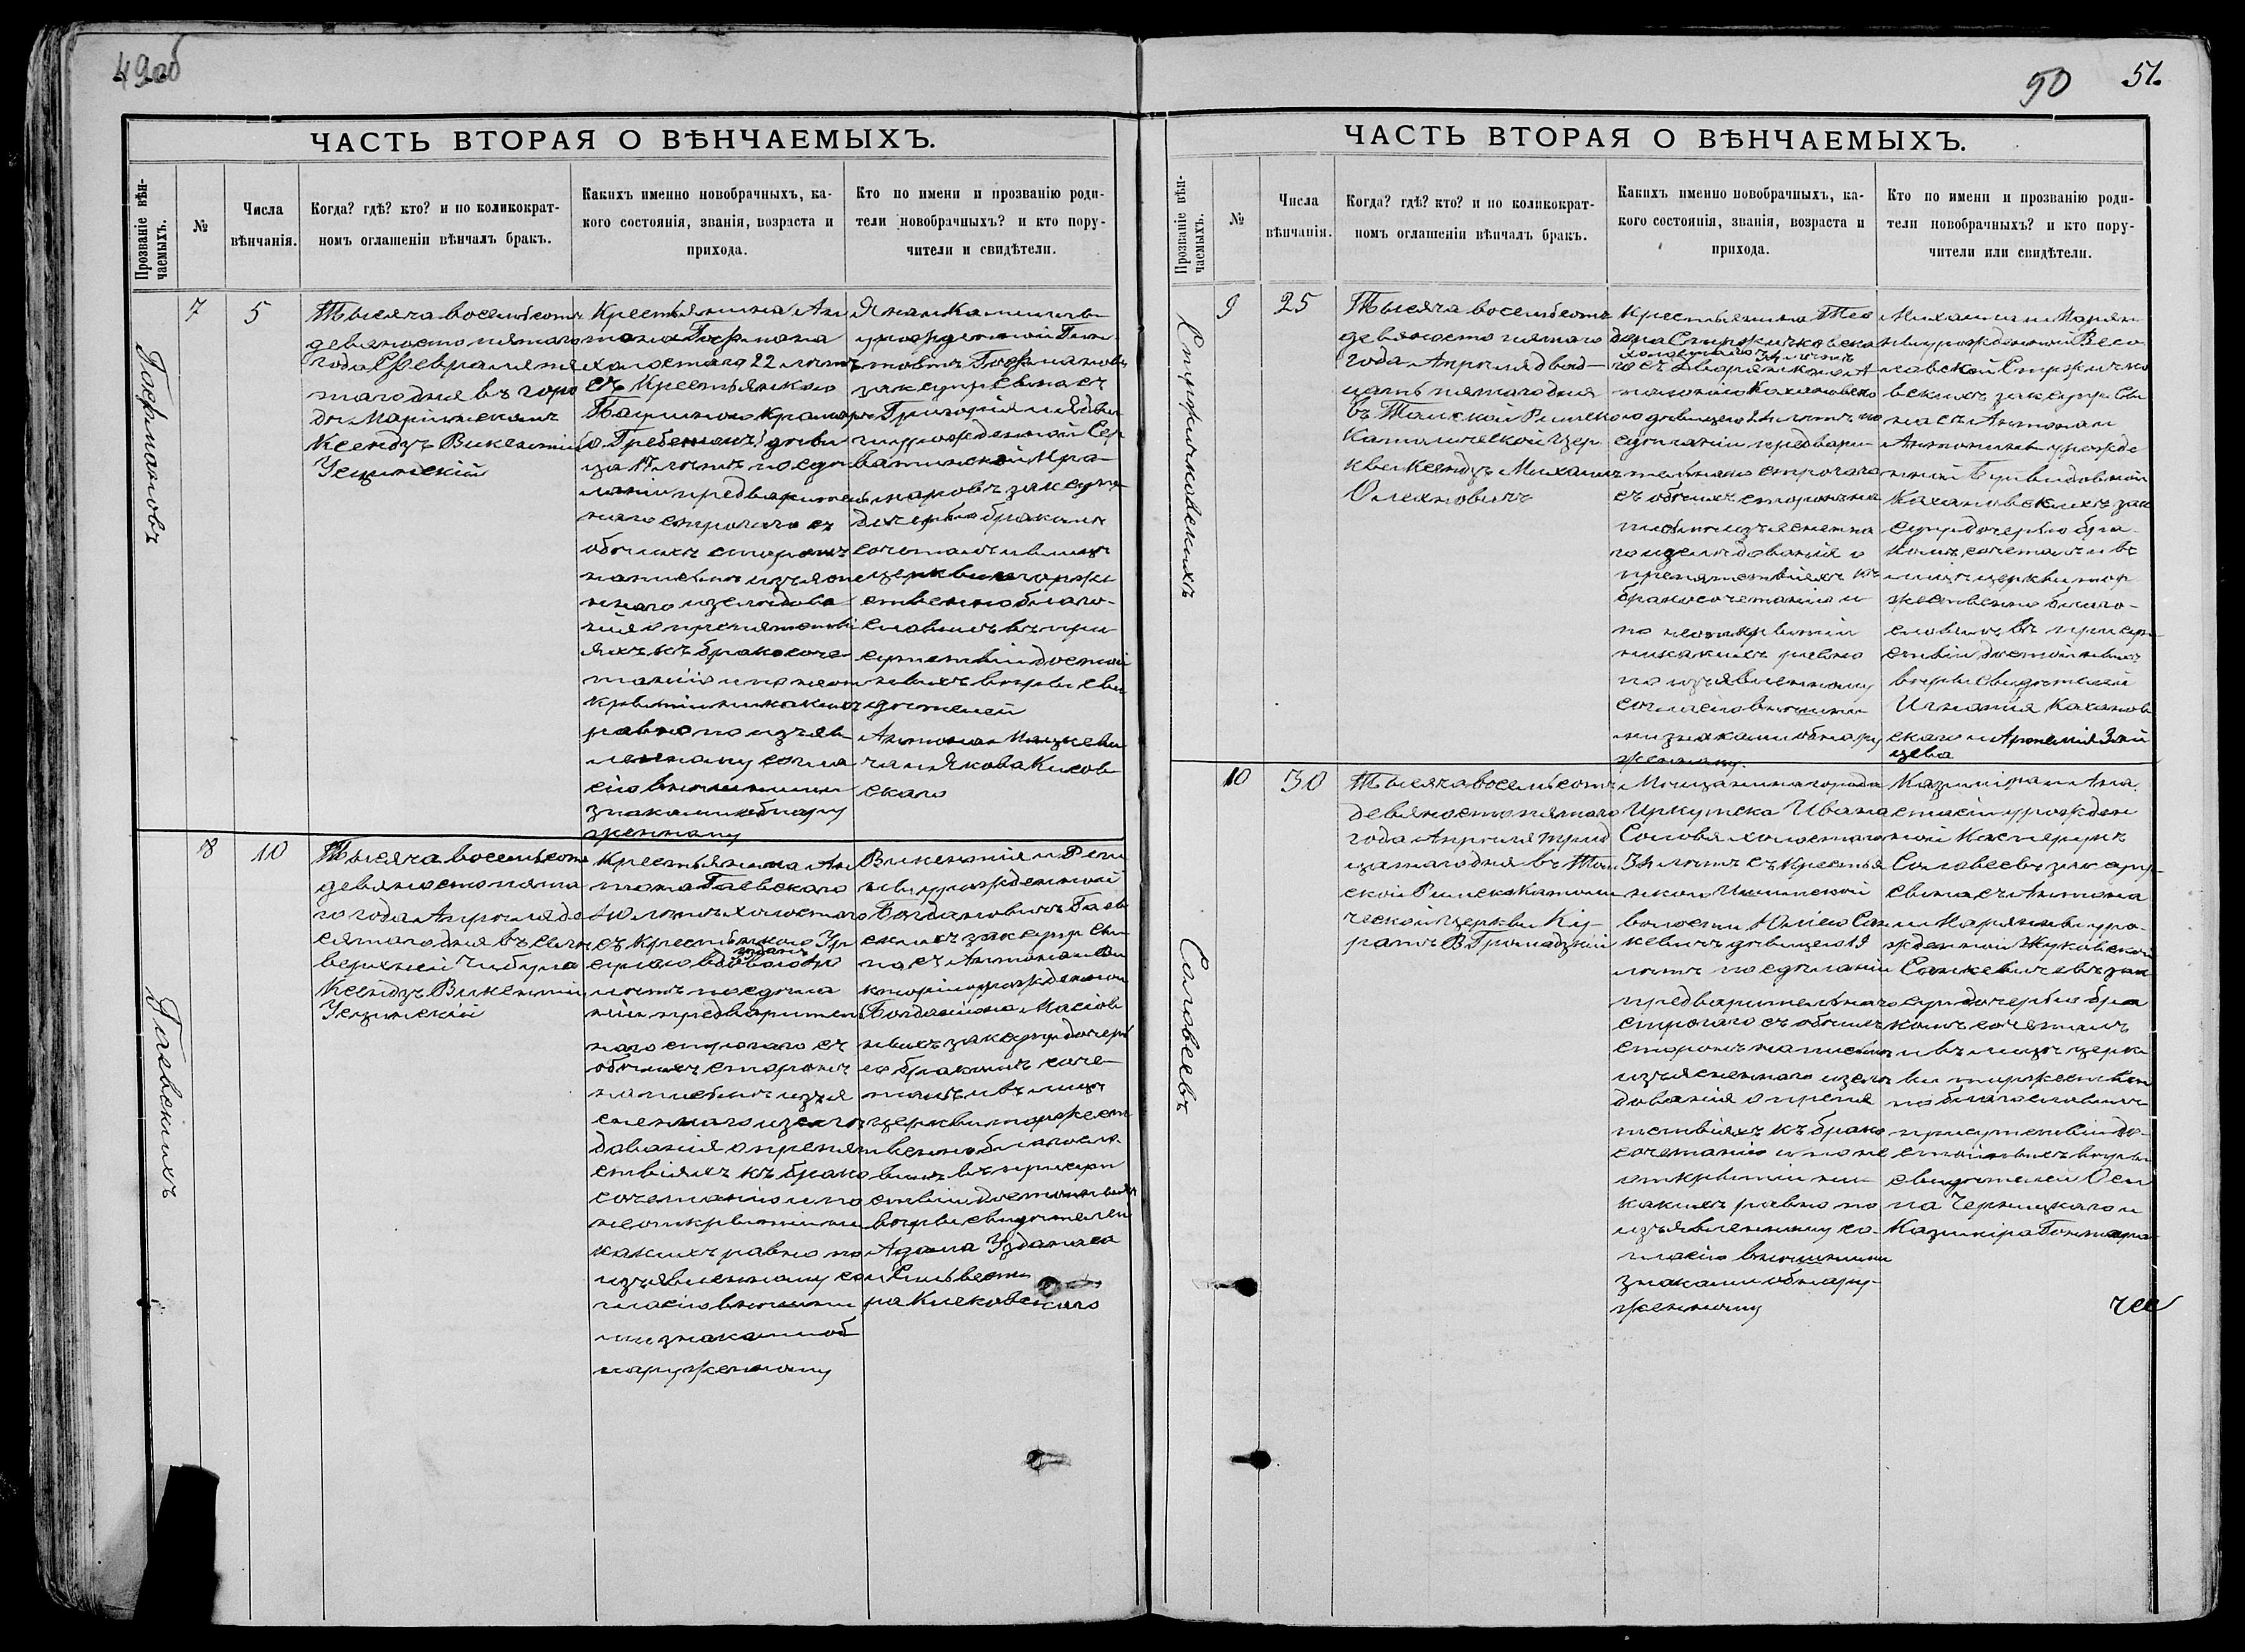 49об
ЧАСТЬ ВТОРАЯ О ВѢНЧАЕМЫХЪ.
Прозваніе вѣн-
чаемыхъ.
№
Числа
вѣнчанія.
Когда? гдѣ? кто? и по коликократ-
номъ оглашеніи вѣнчалъ бракъ.
Какихъ именно новобрачныхъ, ка-
кого состоянія, званія, возраста и
прихода.
Кто по имени и прозванію роди-
тели новобрачныхъ? и кто пору-
чители и свидѣтели.
Гофмановъ
7
5
Тысяча восемьсотъ
девяносто пятаго
года Февраля пя
таго дня въ горо
дѣ Маріинскомъ
Ксендзъ Викентій
Крестьянина Ан
тона Гофмана
холостаго 22 лѣтъ
съ Крестьянкою
(о Гребенемъ) дѣви
цею 17 лѣтъ по сдѣ
ланіи предваритель
наго строгаго съ
обѣихъ сторонъ
на письмѣ изъясне
ннаго изслѣдова
нія о препятстві
яхъ къ бракосоче
танію и по неот
крытіи никакихъ
равно по изъяв
ленному согла
сію внѣшними
знаками обнару
женному
урожденной
Гофмановъ
зак супр сына съ
Григорія и Ядви
ги урожденной
зак супр
дочерью бракомъ
сочеталъ и въ лицѣ
церкви торже
ственно благо-
словилъ въ при
сутствіи достой
ныхъ вѣры сви
дѣтелей
Антона Мацкеви
ча и Якова Кисов
скаго
Гаевскихъ
8
10
Тысяча восемьсотъ
девяносто пята
го года Апрѣля де
сятаго дня въ селѣ
верхней Чебула
Ксендзъ Викентій
Крестьянина Ан
тона Гаевскаго
40 лѣтъ холостаго
съ Крестьянкою Ур
сулою вдовою 40
лѣтъ по сдѣла
ніи предварител
наго строгаго съ
обѣихъ сторонъ
на письмѣ изъя
сненнаго изслѣ
дованія о препят
ствіяхъ къ брако
сочетанію и по
неоткрытіи ни
какихъ равно по
изъявленному со
гласію внѣшни
ми знаками об
наруженному
Викентія и
урожденной
Богдановичъ Гаев
скихъ зак супр сы
на съ Антона и Ви
кторіи урожденной
зак супр дочерь
ю бракомъ соче
талъ и въ лицѣ
церкви торжест
венно благосло
вилъ въ присут
ствіи достойныхъ
вѣры свидѣтелей
Адама Узданяса
и Сильвест
ра Кисковскаго
50
51.
ЧАСТЬ ВТОРАЯ О ВѢНЧАЕМЫХЪ.
Прозваніе вѣн-
чаемыхъ.
№
Числа
вѣнчанія.
Когда? гдѣ? кто? и по коликократ-
номъ оглашеніи вѣнчалъ бракъ.
Какихъ именно новобрачныхъ, ка-
кого состоянія, званія, возраста и
прихода.
Кто по имени и прозванію роди-
тели новобрачныхъ? и кто пору-
чители или свидѣтели.
Стржижковскихъ
9
25
Тысяча восемьсотъ
девяносто пятаго
года Апрѣля двад-
цать пятаго дня
въ Томской Римско
Католической цер
кви Ксендзъ Михаилъ
Олехновичъ
Крестьянина Тео
дора Стржижковска
холостаго 34 лѣтъ
го съ Дворянкою А
полонію Кахановско
ю дѣвицею 24 лѣтъ по
сдѣланіи предвари-
тельнаго строгаго
съ обѣихъ сторонъ на
письмѣ изъясненна
го изслѣдованія о
препятствіяхъ къ
бракосочетанію и
по неоткрытіи
никакихъ равно
по изъявленному
согласію внѣшни
ми знаками обнару
женному.
Михаила и Маріян
ны урожденной
Стржижко
вскихъ зак супр сы
на съ Антона и
Антонины урожде
нной
Кахановскихъ зак
супр дочерью бра-
комъ сочеталъ и въ
лицѣ церкви тор
жественно благо-
словилъ въ присут
ствіи достойныхъ
вѣры свидѣтелей
Игнатія Каханов
скаго и Артемія Зай
цева
Соловьевъ
10
30
Тысяча восемьсотъ
девяносто пятаго
года Апрѣля трид
цатаго дня въ Том
ской Римско Католи
ческой церкви Ку-
ратъ В. Громадзкій
Мѣщанина города
Иркутска Ивана
Соловья холостаго
34 лѣтъ съ Крестья
нкою Ишимской
волости Юлію Сан
кевичъ дѣвицею 19
лѣтъ по сдѣланіи
предварительнаго
строгаго съ обѣихъ
сторонъ на письмѣ
изъясненнаго изслѣ
дованія о препя
тствіяхъ къ брако
сочетанію и по не
открытіи ни
какихъ равно по
изъявленному со-
гласію внѣшними
знаками обнару-
женному
Казиміра и Ана
стасіи урожден
ной Касперукъ
Соловьевъ зак супр
сына съ Антона
и Маріянны уро-
жденной Жуковской
Санкевичевъ зак
супр дочерью бра
комъ сочеталъ
и въ лицѣ церк
ви торжествен
но благословилъ
присутствіи до-
стойныхъ вѣры
свидѣтелей Оси
па Черницкаго и
Казиміра